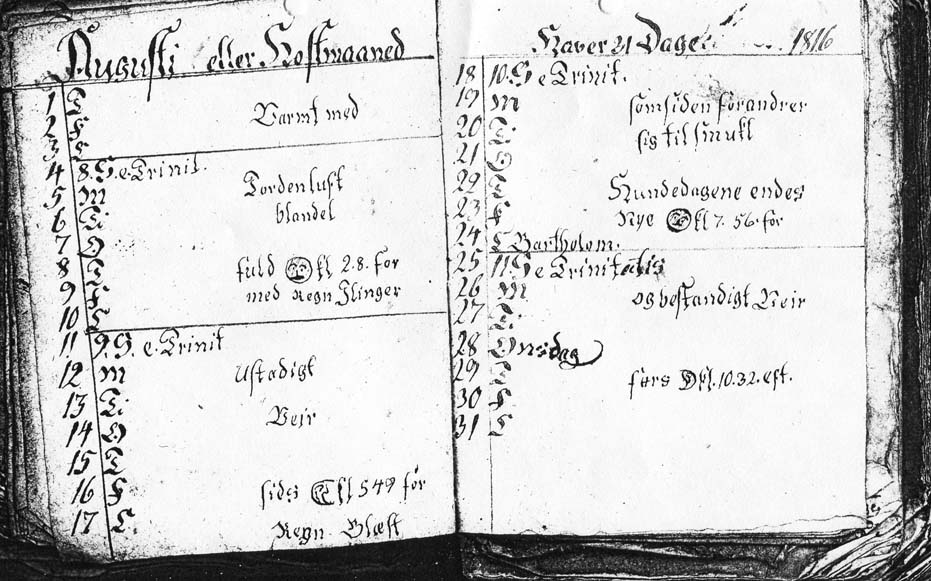 Augusti eller Hostmaaned
1 T
2 F Varmt med
3 S
4 8. S. e. Trinit.
5 M Tordenluft
6 Ti. blandel
7 O
8 T fuld kl 2.8. for
9 F med Regn Ilinger
10 S
11 9. S. e. Trinit
12 M Ustadigt
13 Ti.
14 O Vejr
15 T
16 F sids kl 5 49 for
17 S. Regn Blæst
Haver 31 Dage. 1816
18 10. S e Trinit.
19 M somsiden forandrer
20 Ti. sig til smukt
21 O
22 T Hundedagene endes
23 F Nye kl 7. 56. for
24 S Bartholom.
25 11. S e Trinitatis
26 M og bestandigt Veir
27 Ti.
28 Onsdag
29 T førs kl. 10. 32. eft.
30 F
31 S